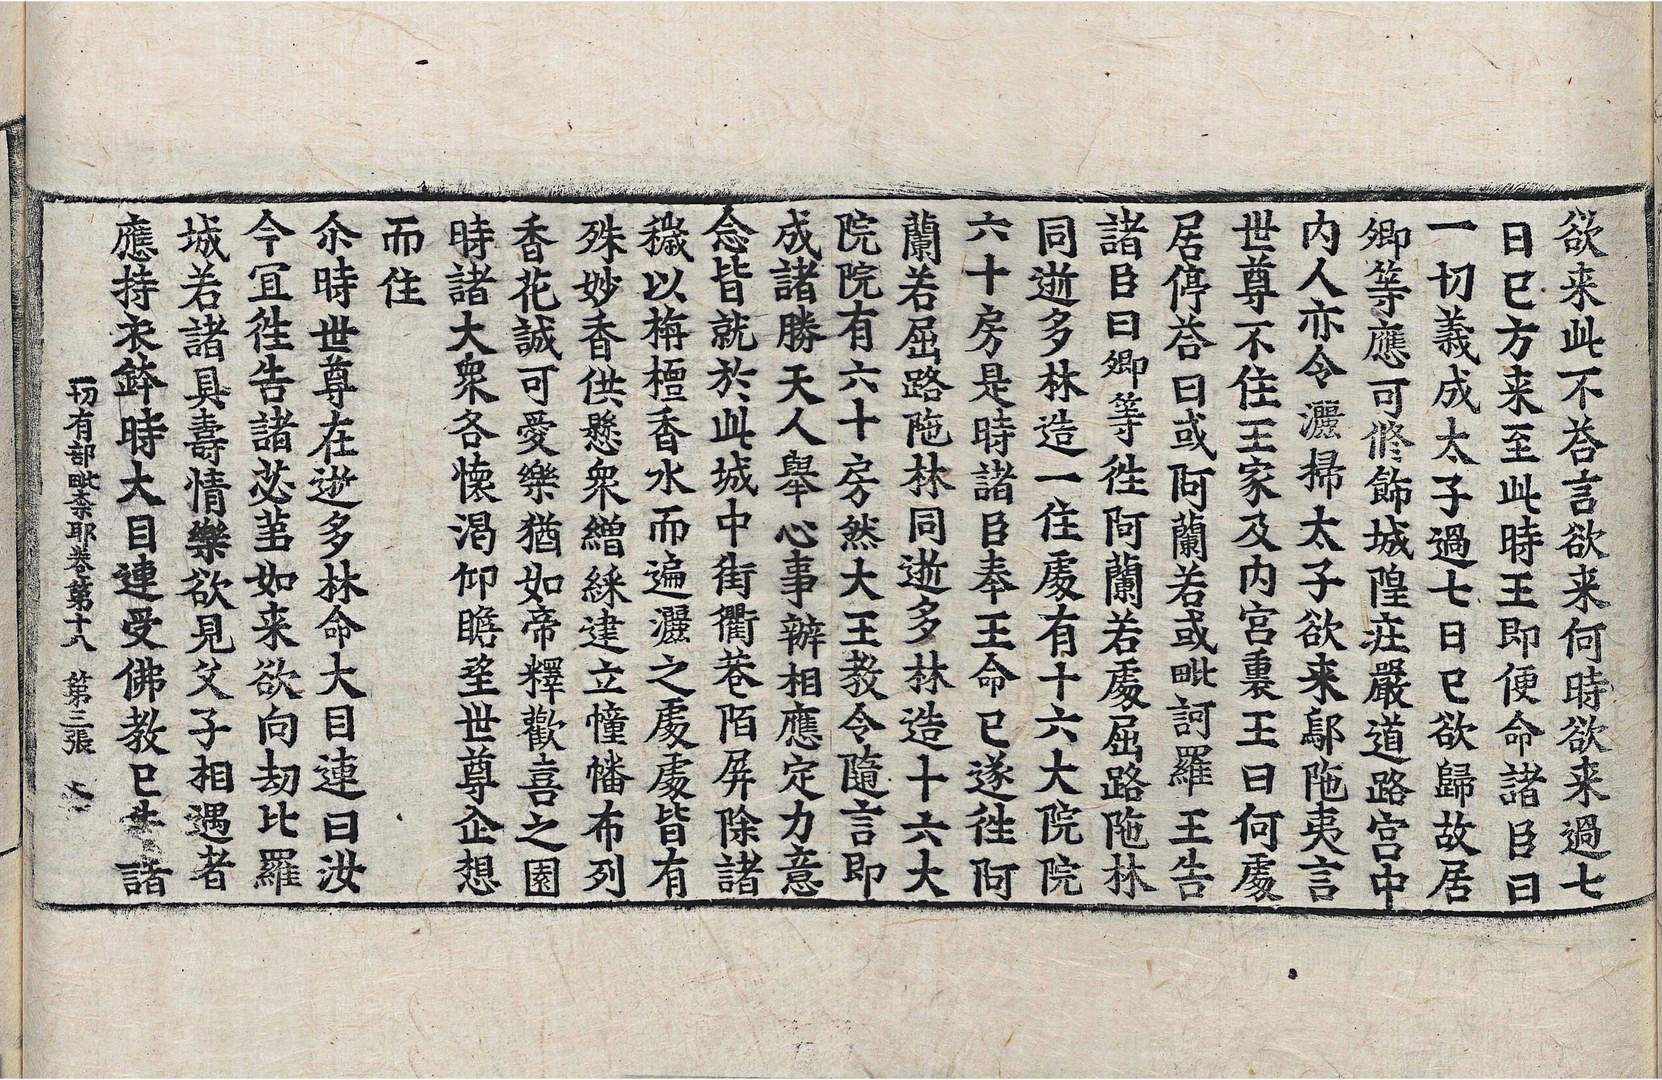 欲来此不荅言欲来何時欲来過七
日已方来至此時王即便命諸臣曰
一切義成太子過七日已欲歸故居
卿等應可修飾城隍庄嚴道路宮中
内人亦令灑掃太子欲来鄔陁夷言
世尊不住王家及内宮裏王曰何處
居停荅曰或阿蘭若或毗訶羅王告
諸臣曰卿等徃阿蘭若處屈路陁林
同逝多林造一住處有十六大院院
六十房是時諸臣奉王命已遂徃阿
蘭若屈路陁林同逝多林造十六大
院院有六十房然大王教令隨言即
成諸勝天人舉心事辦相應定力意
念皆就於此城中街衢巷陌屏除諸
穢以栴檀香水而遍灑之處處皆有
殊妙香供懸衆繒綵建立幢幡布列
香花誠可愛樂猶如帝釋歡喜之園
時諸大衆各懷渇仰瞻望世尊企想
而住
尒時世尊在逝多林命大目連曰汝
今冝徃告諸苾芻如来欲向劫比羅
城若諸具壽情樂欲見父子相遇者
應持衣鉢時大目連受佛教已告諸
一切有部毗柰耶卷第十八 第三張